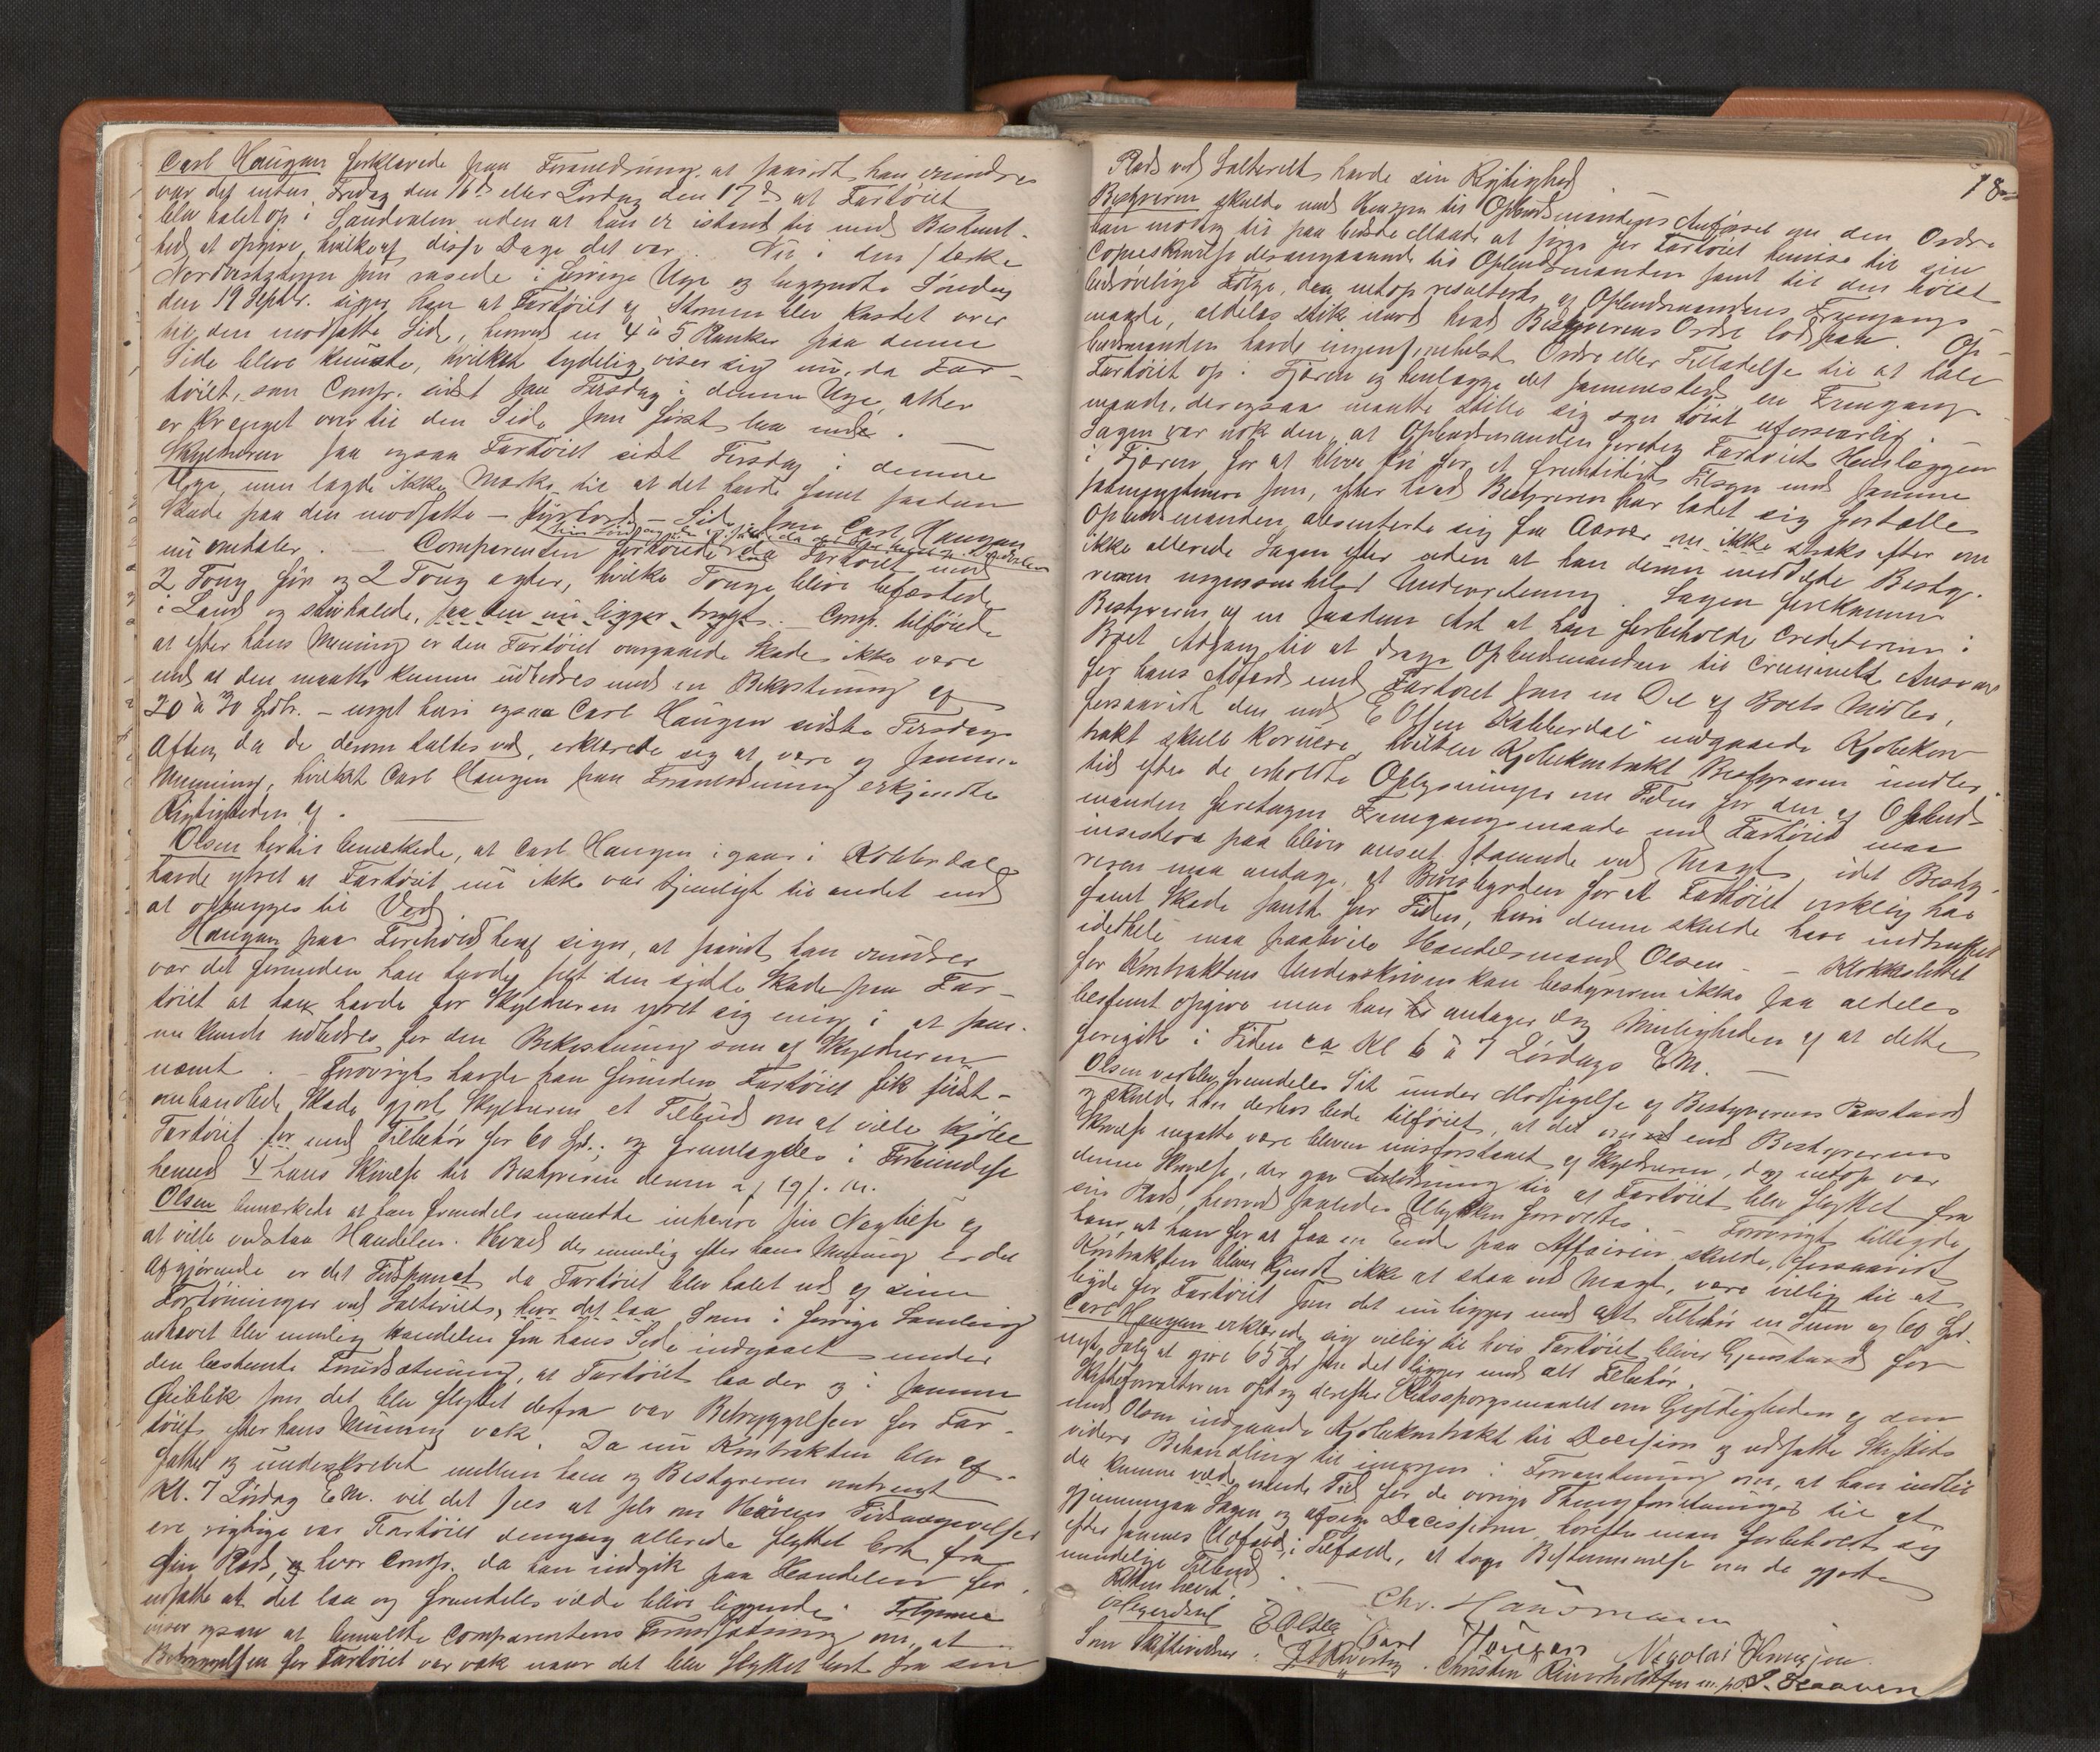 Carl Haugan forklarede paa Foranledning at saavidt han erindrer
var det enten Fredag den 16de eller Lørdag den 17de at Fartöiet
blev halet op i Sandvalen uden at han er istand til med Bestemt-
hed at opgive, hvilken af disse Dage det var. Nu i den sterke
Nordvestastorm som rasede i forrige Uge og begyndte Söndag
den 19 Septbr. siger han at Fartöiet af Stormen blev kastet over
til den modsatte Side, hvorved en 4 à 5 Planker paa denne
Side bleve knuste, hvilket tydelig viser sig nu, da Far-
töiet, som Comp. sidst saa Tirsdag i denne Uge, atter
er krænget over til den Side som först laa inde.
Skyldneren saa ogsaa Fartöiet sidst Tirsdag i denne
Uge, men lagde ikke Mærke til at det havde faaet saadan
Skade paa den modsatte - Styrbord - Side, som Carl Haugan
nu omtaler. - Comparenten fortöiede da Fartöiet med
2 Toug for og 2 Toug agter, hvilke Touge bleve befæstede
i Land og stivhalede, saa den nu ligger trygt. - Comp. tilföiede
at efter hans Mening er den Fartöiet overgaaede Skade ikke være
end at den maatte kunne udbedres med en Bekostning af
20 à 30 Spdlr. - noget hvori ogsaa Carl Haugen sidste Tirsdags
Aften, da de derom taltes ved, erklærede sig at være af samme
Mening, hvilket Carl Haugen paa Foranledning erkjendte
Rigtigheden af.
Olsen hertil bemærkede, at Carl Haugen igaar i Kobberdal
havde ytret at Fartöiet nu ikke var tjenligt til andet end
at ophugges til Ved.
Haugan paa Forehold heraf siger, at saavidt han erindrer
var det forinden han havde seet den sidste Skade paa Far-
töiet at han havde for Skyldneren ytret sig enig i at sam-
me kunde udbedres for den Bekostning som af Skyldneren
nævnt. - Forövrigt havde han forinden Fartöiet fik sidst-
ombandlede Skade gjort Skyldneren et Tilbud om at ville kjöbe
Fartöiet for med Tilbehör for 60 Spd.; og fremlagdes i Forbindelse
hermed 4 hans Skrivelse til Bestyreren derom af 19 f. M.
Olsen bemærkede at han fremdeles maatte inhærere sin Nægtelse af
at ville vedstaa Handelen. Hvad der nemlig efter hans Mening er det
afgjörende er det Tidspunct, da Fartöiet blev halet ud af sine
Fortöininger ved Salteriet, hvor det laa. Som i forrige Samling
udhævet blev nemlig Handelen fra hans Side indgaaet under
den bestemte Forudsætning, at Fartöiet laa der og i samme
Öieblik som det blev flyttet derfra var Betryggelsen for Far-
töiet efter hans Mening væk. Da nu Kontrakten blev af-
fattet og underskrevet mellem ham og Bestyreren omtrent
Kl. 7 Lördag E.M. vil det sees at selv om Hörens Tidsangivelser
ere rigtige var Fartöiet dengang allerede flyttet bort fra
sin Plads, og hvor Comp. da han indgik paa Handelen for-
udsatte at det laa og fremdeles vilde blive liggende.
viser ogsaa at bemeldte Comparentens Forudsætning om, at
Betryggelsen for Fartöiet var væk naar det blev flyttet bort fra sin
18
Plads ved Salteriet havde sin Rigtighed.
Bestyreren skulde med Hensyn til Opbudsmandens Anförsel om den Ordre
han modtog til paa bedste Maade at sörge for Fartöiet henvise til sin
Copieskrivelse derangaaende til Opbudsmanden samt til den höist
bedrövelige Fölge, den netop resulterede af Opbudsmandens Fremgangs-
maade, aldeles stik imod hvad Bestyrerens Ordre löd paa. Op-
budsmanden havde ingensomhelst Ordre eller Tilladelse til at hale
Fartöiet op i Fjæren og henlægge det sammesteds, en Fremgangs-
maade, der ogsaa maatte stille sig som höist uforsvarlig.
Sagen var nok den, at Opbudsmanden foretog Fartöiets Henlæggen
i Fjæren for at blive fri for et fremtidigt Tilsyn med samme
som, efter hvad Bestyreren har ladet sig fortælle
Opbudsmanden absenterte sig fra Aarvær om ikke straks efter om
ikke allerede Dagen efter uden at han derom meddelte Besty-
reren nogensomhelst Underretning. Sagen forekommer
Bestyreren af en saadan Art at han forbeholder Creditorerne i
Boet Adgang til at drage Opbudsmanden til Criminelt Ansvar
for hans Adfærd med Fartöiet som en Del af Boets Midler,
forsaavidt den med E Olsen Kobberdal indgaaede Kjöbekon-
trakt skulde kornere, hvilken Kjöbekontrakt Bestyreren imidler-
tid efter de erholdte Oplysninger om Tiden for den af Opbuds-
manden foretagen Fremgangsmaade med Fartöiet maa
insistere paa bliver anseet staaende ved Magt, idet Besty-
reren maa antage, at Bevisbyrden for at Fartöiet virkelig har
faaet Skade samt for Tiden, hvori denne skulde have indtruffet
idethele maa paahvile Handelsmand Olsen. - Klokkeslettet
for Kontraktens Underskriven kan bestyreren ikke saa aldeles
bestemt opgive men han antager dog Muligheden af at dette
foregik i Tiden ca Kl 6 à 7 Lördags E.M. -
Olsen vedblev fremdeles Sit under Modsigelse af Bestyrerens Paastand
og skulde han derhos bede tilföiet, at det om end Bestyrerens
Skrivelse maatte være bleven misforstaaet af Skyldneren, dog netop var
denne Skrivelse, der gav Anledning til at Fartöiet blev flyttet fra
sin Plads, hvorved saaledes Ulykken forvoldtes. - Forövrigt tilbyde
han, at han for at faa en Ende paa Affairen skulde, forsaavidt
Kontrakten bliver kjendt ikke at staa ved Magt, være villig til at
byde for Fartöiet som det nu ligger med alt Tilbehör en Sum af 60 Spd.
Carl Haugan erklærede sig villig til hvis Fartöiet bliver Gjenstand for
nyt Salg at give 65 Spd som det ligger med alt Tilbehör.
Skifteforvalteren optog derefter Retsspörgsmaalet om Gyldigheden af den
med Olsen indgaaede Kjöbekontrakt til Decision og udsatte Skiftets
videre Behandling til imorgen i Forventning om, at han indtil
da kunne vilde vinde Tid for de övrige Thingforretninger til at
gjennemgaa Sagen og afsige Decisionen, hvorefter man forbeholdt sig
efter sammes Udfald, i Tilfælde, at tage Bestemmelse om de gjorte
mundtlige Tilbud.
Retten hævet.
Chr. Hausmann
E Olsen Carl Haugan Nicolai Henrigsen
Som Skiftevidner: Christen Reinholdtsen m.p. S. Haaven